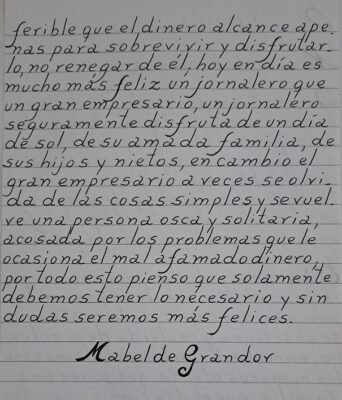 ferible que el dinero alcance ape-
nas para sobrevivir y disfrutar-
lo, no renegar de él. hoy en día es
mucho más feliz un jornalero que
un gran empresario, un jornalero
seguramente disfruta de un día
de sol, de su amada familia, de
sus hijos y nietos, en cambio el
gran empresario a veces se olvi-
da de las cosas simples y se vuel-
ve una persona osca y solitaria,
acosada por los problemas que le
ocasiona el mal afamado dinero.
por todo esto pienso que solamente
debemos tener lo necesario y sin
dudas seremos más felices.
Mabel de Grandor